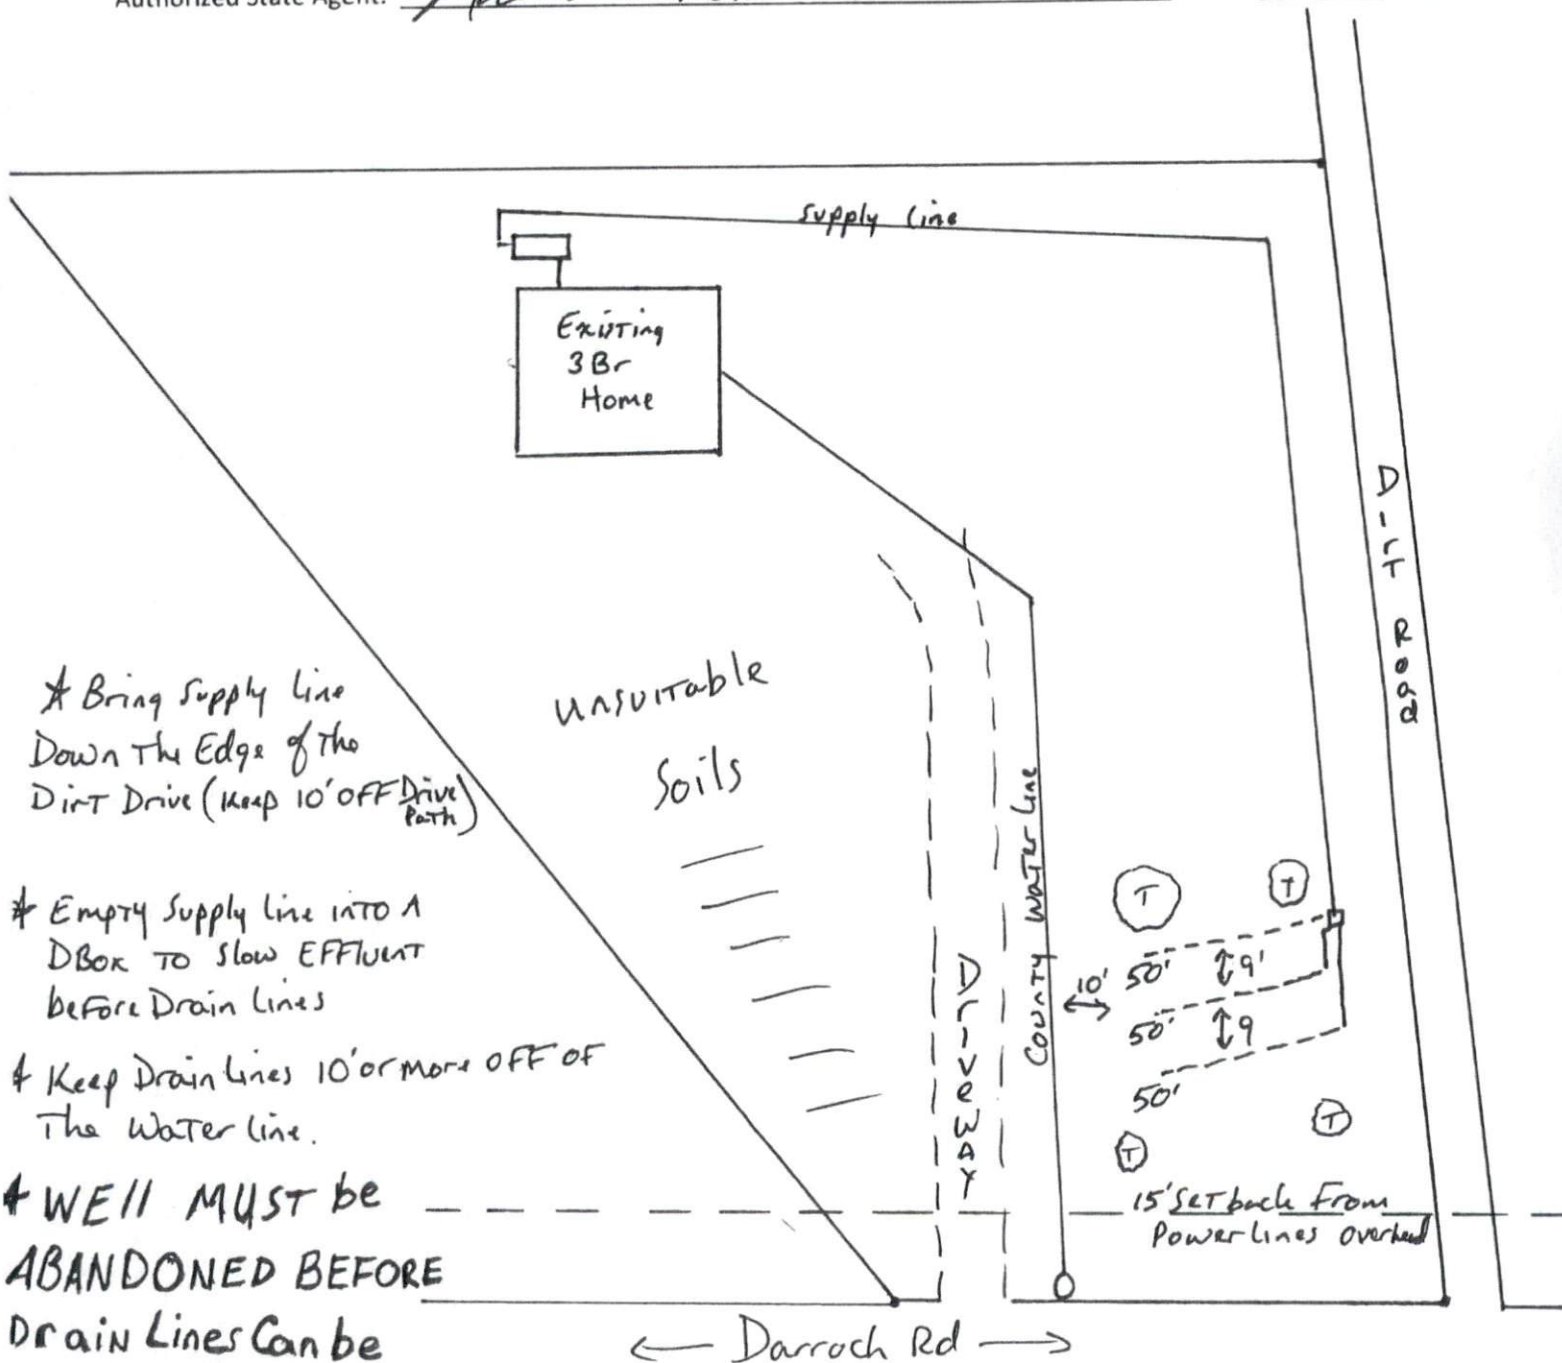 Authorized State Agent:
Supply Line
Existing
3Br
Home
Dirt Road
* Bring Supply Line
Down The Edge of The
Dirt Drive (Keep 10' OFF Drive
Path)
unsuitable
Soils
* Empty Supply line into A
DBox To Slow EFFluent
before Drain Lines
* Keep Drain Lines 10' or more OFF of
The Water Line.
* WEll MUST be
ABANDONED BEFORE
Drain Lines Can be
Driveway
County Water Line
T
T
10'
50'
9'
50'
9
50'
T
T
15' Setback From
Powerlines overhead
Darroch Rd